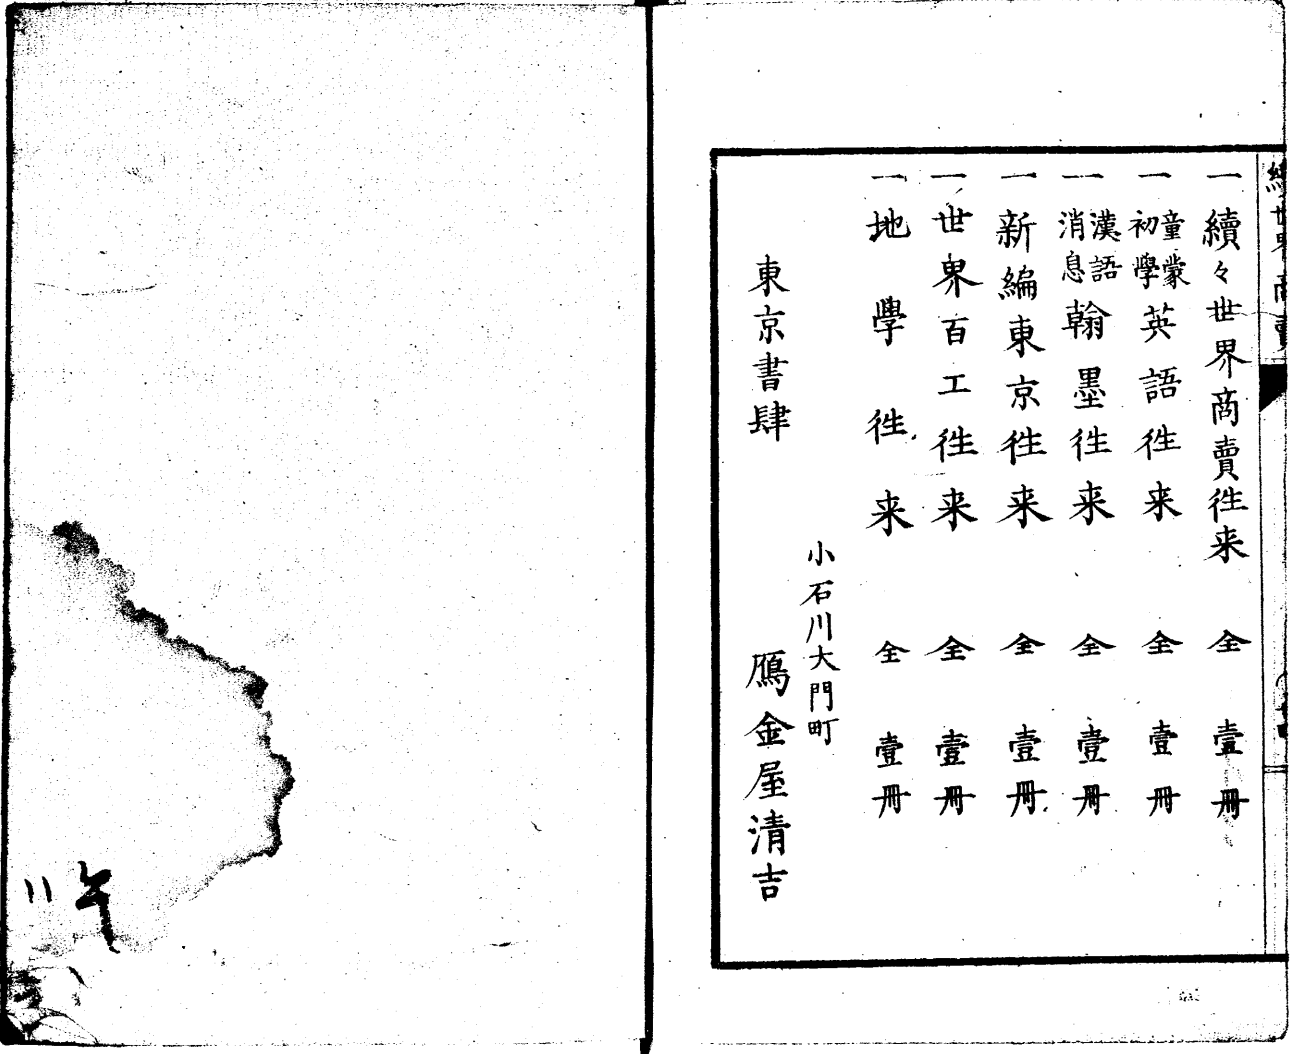 續世界商賣
一 續々世界商賣徃来 全 壹冊
一 童蒙初學英語徃来 全 壹冊
一 漢語消息翰墨徃来 全 壹冊
一 新編東京徃来 全 壹冊
一 世界百工徃来 全 壹冊
一 地學徃来 全 壹冊
小石川大門町
東京書肆 鴈金屋清吉